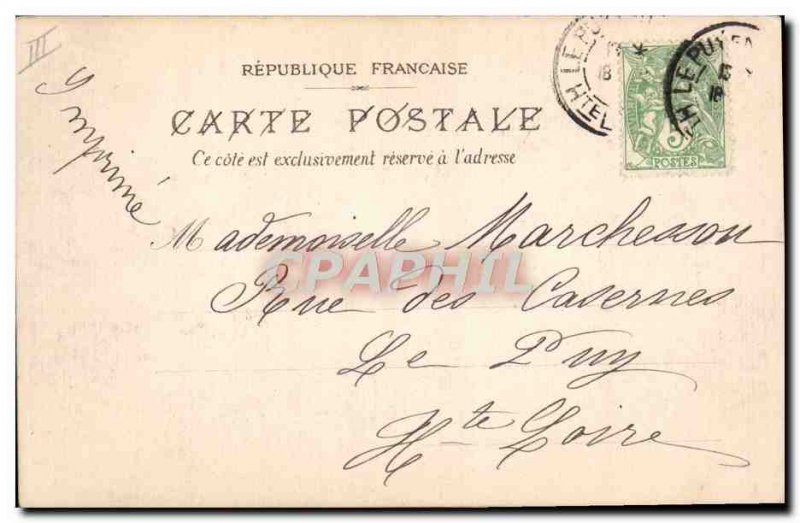 III
Imprimé
RÉPUBLIQUE FRANCAISE
CARTE POSTALE
Ce côté est exclusivement réservé à l'adresse
LE PUY
18
HTE L
LE PUY EN
18
H
5
POSTES
Mademoiselle Marchesson
CPAPHIL
Rue des Casernes
Le Puy
Hte Loire